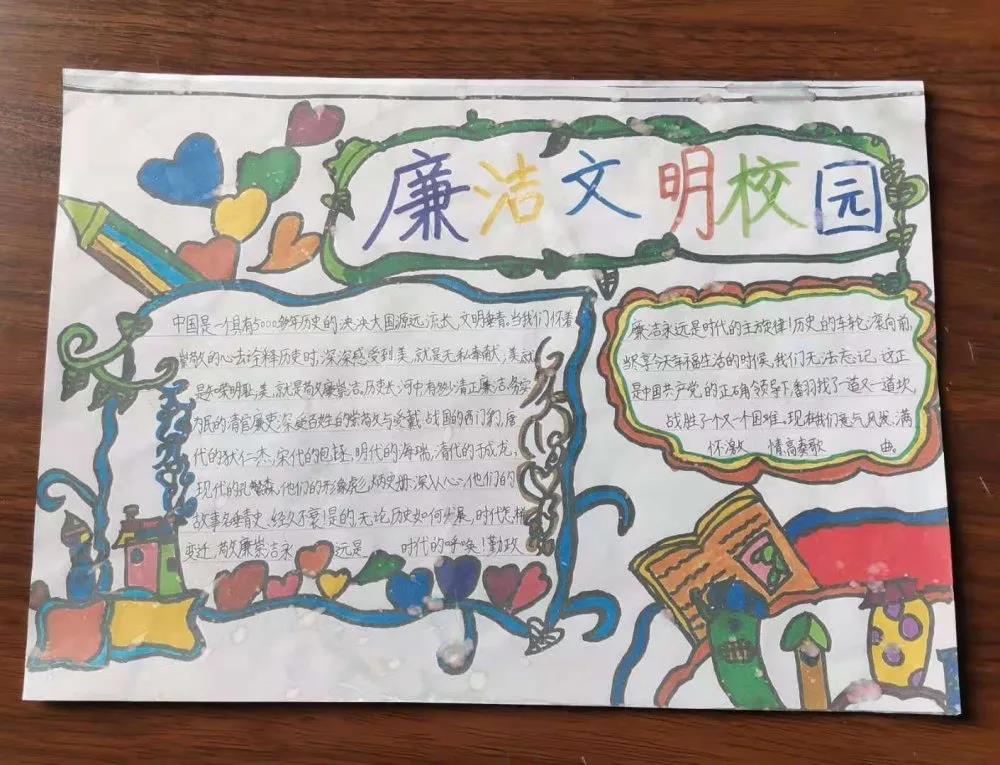 廉洁文明校园
中国是一个具有5000多年历史的泱泱大国源远流长,文明垂青.当我们怀着
崇敬的心去诠释历史时,深深感受到美,就是无私奉献,美就
是光明磊,美,就是敬廉崇洁.历史长河中有多少清正廉洁务实
为民的清官廉吏,深受百姓的崇敬与爱戴.战国的西门豹,唐
代的狄仁杰,宋代的包拯,明代的海瑞,清代的于成龙,
现代的孔繁森,他们的形象彪炳史册,深入人心,他们的
故事名垂青史,经久不衰!是的,无论历史如何发展,时代怎样
变迁,敬廉崇洁永远是时代的呼唤!勤政
廉洁永远是时代的主旋律!历史的车轮滚滚向前,
当尽享今天幸福生活的时候,我们无法忘记,这正
是中国共产党的正确领导下,翻找了一道又一道坎,
战胜了个又一个困难。现在我们意气风发,满
怀激情高奏歌曲。